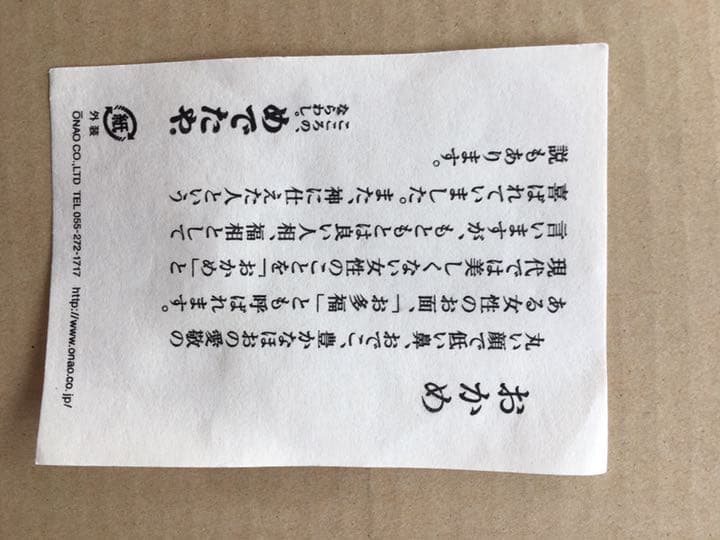 おかめ
丸い顔で低い鼻、おでこ、豊かなほおの愛敬の
ある女性のお面、「お多福」とも呼ばれます。
現代では美しくない女性のことを「おかめ」と
言いますが、もともとは良い人相、福相として
喜ばれていました。また、神に仕えた人という
説もあります。
こころの、
ならわし。
めでたや
紙
外装
ŌNAO CO.,LTD TEL 055-272-1717 http://www.onao.co.jp/